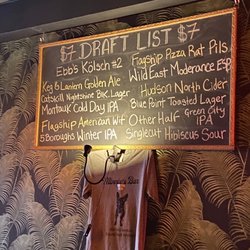 $7 DRAFT LIST $7
Ebb's Kölsch #2
Flagship Pizza Rat Pils
Keg & Lantern Golden Ale
Wild East Moderance ESB
Catskill Nightshine Blk. Lager
Hudson North Cider
Montauk Cold Day IPA
Blue Point Toasted Lager
Flagship American Wit
Other Half Green City IPA
5 Boroughs Winter IPA
Singlecut Hibiscus Sour